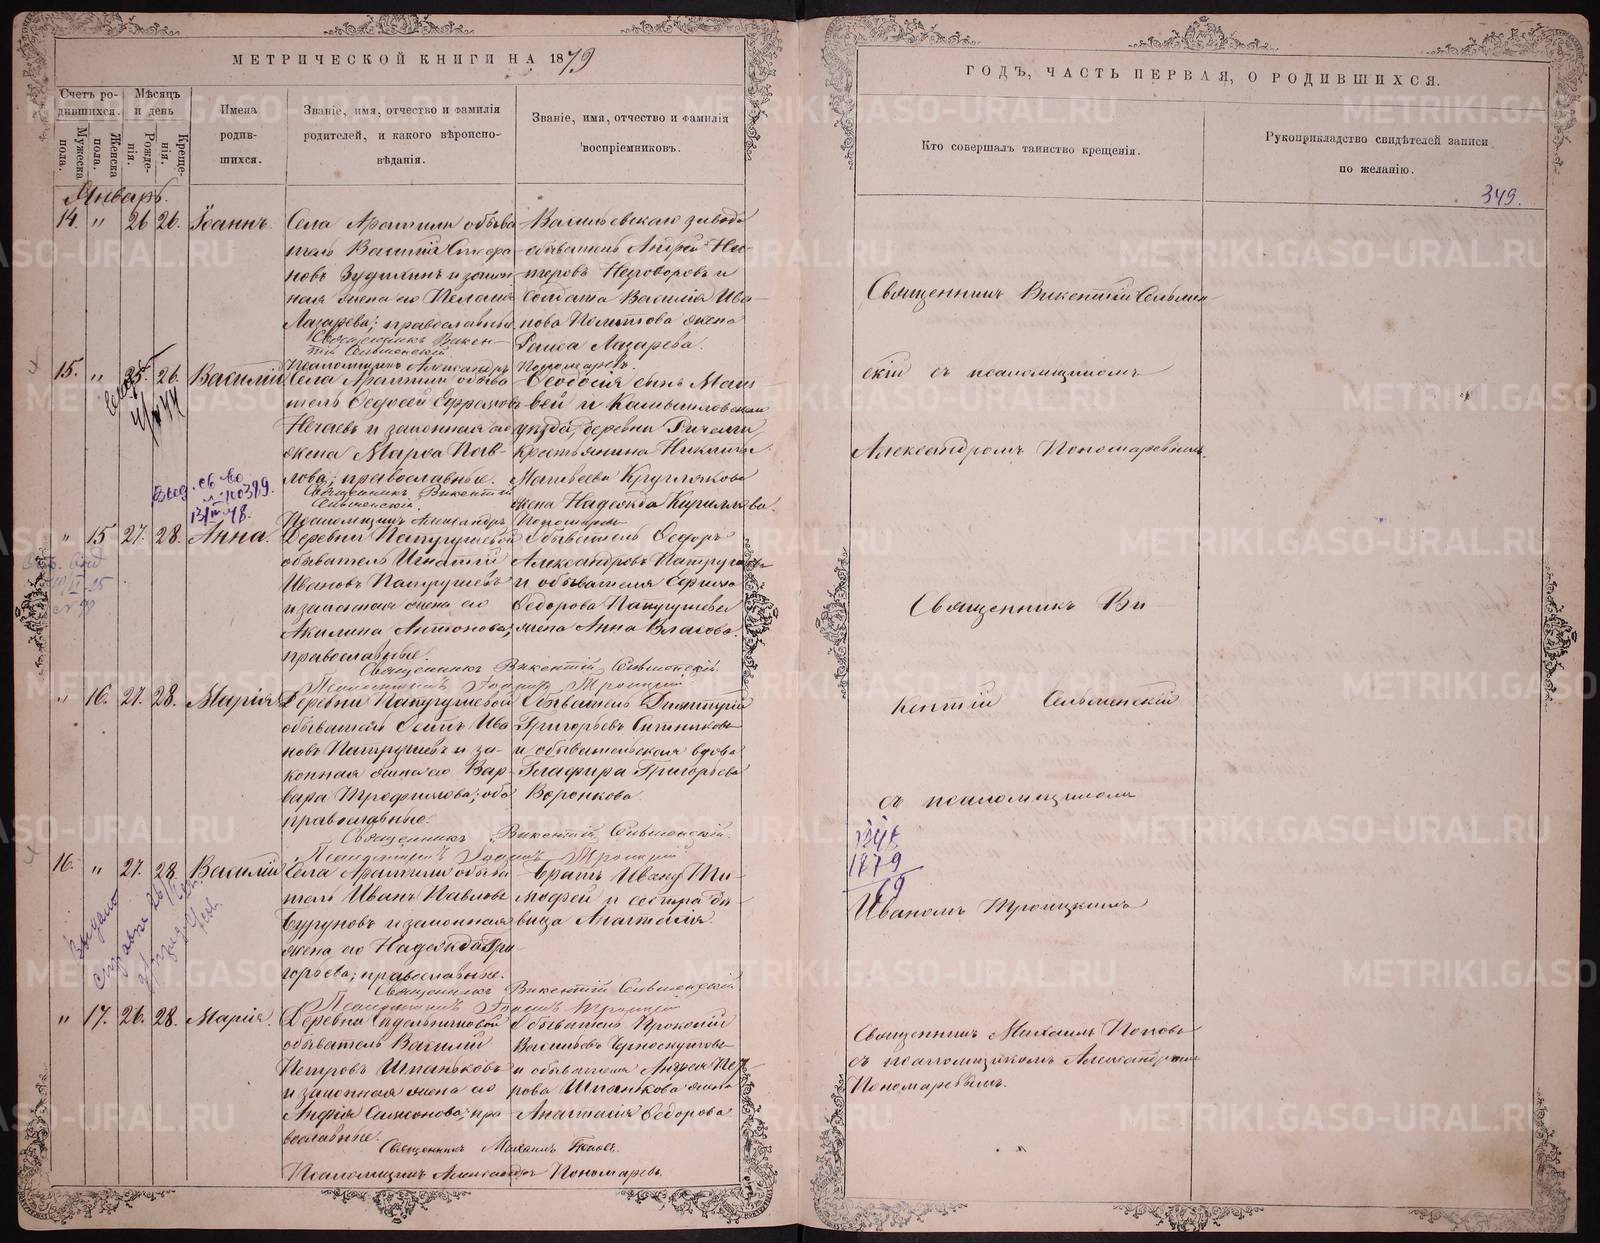 МЕТРИЧЕСКОЙ КНИГИ НА 1879
Счетъ ро-
дившихся.
Мужеска
пола.
Женска
пола.
Мѣсяцъ
и день
Рожде-
нія.
Креще-
нія.
Имена
родив-
шихся.
Званіе, имя, отчество и фамилія
родителей, и какого вѣроиспо-
вѣданія.
Званіе, имя, отчество и фамилія
воспріемниковъ.
Январь.
14. " 26 26. Іоаннъ.
Села Арамили обыва
тель Василій
новъ и закон
ная жена его Пелагія
Лазарева; православны
Священникъ Викен-
тій Сельменскій.
Псаломщикъ Александръ Пономаревъ.
обыватель Андрей Не-
и
солдата Василія Ива
нова жена
Раиса Лазарева.
15. " 25. 26. Василій
Села Арамили обыва
тель Ѳедосей Ефремовъ
Нечаевъ и законная его
жена Марѳа Пав-
лова; православные.
Священникъ Викентій
Сельменскій.
Псаломщикъ Александръ Пономаревъ
Ѳеодосія сынъ Мат
вей и Камышловскаго
уѣзда, деревни
крестьянина Никиты
Матвеева Круглякова
жена Надежда Кириллова.
Выд. св-во
№ 100389.
13/IV 48.
" 15 27. 28. Анна.
Деревни Патрушевой
обыватель Игнатій
Ивановъ Патрушевъ
и законная жена его
Акилина Антонова;
православные.
Священникъ Викентій Сельменскій.
Псаломщикъ Іоаннъ Троицкій
обыватель Ѳедоръ
Александровъ Патрушевъ
и обывателя Ефима
Ѳедорова Патрушева
жена Анна Власова.
" 16. 27. 28. Марія
Деревни Патрушевой
обыватель Осипъ Ива
новъ Патрушевъ и за-
конная жена его Вар-
вара Трофимова; оба
православные.
Священникъ Викентій Сельменскій.
Псаломщикъ Іоаннъ Троицкій
Обыватель Димитрій
Григорьевъ Ситниковъ
и обывательская вдова
Глафира Григорьева
Воронкова.
16. " 27. 28. Василій
Села Арамили обыва
тель Иванъ Павловъ
Буруновъ и законная
жена его Надежда Гри
горьева; православные.
Священникъ Викентій Сельменскій
Псаломщикъ Іоаннъ Троицкій
братъ Ивану Ти-
мофей и сестра дѣ
вица Анастасія
" 17. 26. 28. Марія.
Деревни Седельниковой
обыватель Василій
Петровъ Шпаньковъ
и законная жена его
Анфія Самсонова; пра
вославные.
Священникъ Михаилъ Поповъ.
Псаломщикъ Александръ Пономаревъ.
обыватель Прокопій
Васильевъ Черноскутовъ
и обывателя Андрея Пет
рова Шпанькова жена
Анастасія Ѳедорова
ГОДЪ, ЧАСТЬ ПЕРВАЯ, О РОДИВШИХСЯ.
Кто совершалъ таинство крещенія.
Рукоприкладство свидѣтелей записи
по желанію.
349.
Священникъ Викентій Сельмен
скій съ псаломщикомъ
Александромъ Пономаревымъ.
Священникъ Ви
кентій Сельменскій
съ псаломщикомъ
1879
69
Иваномъ Троицкимъ
Священникъ Михаилъ Поповъ
съ псаломщикомъ Александромъ
Пономаревымъ.
METRIKI.GASO-URAL.RU